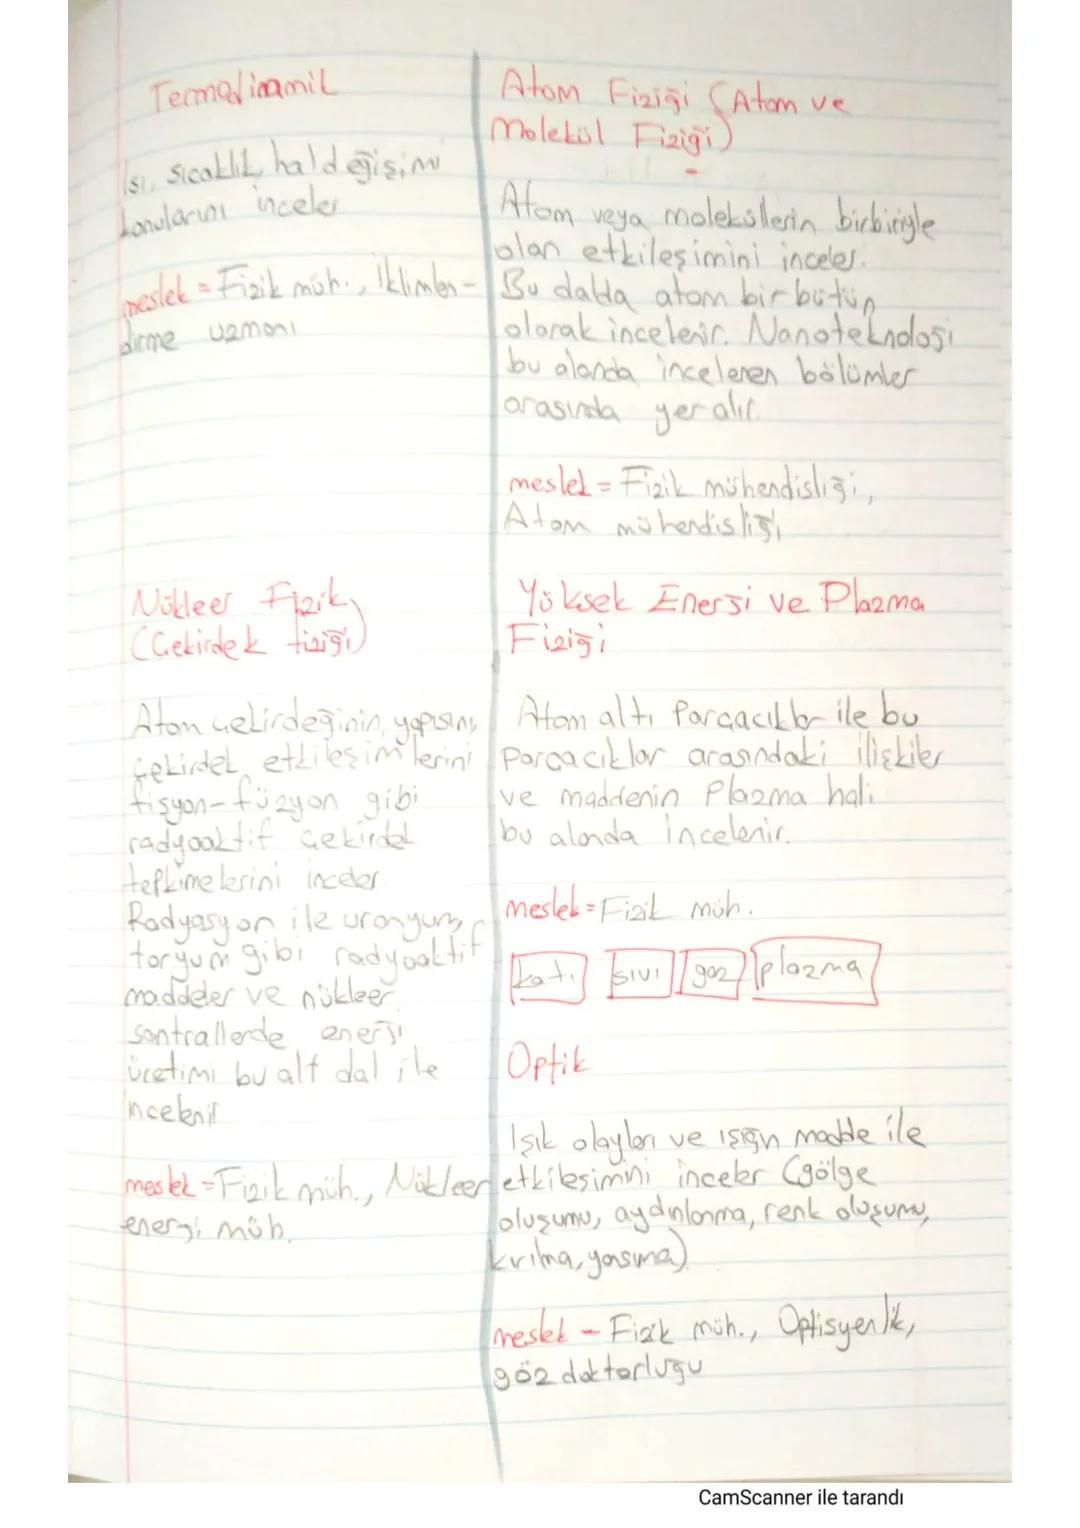 Termodinamik
Isı, sıcaklık, hal değişimi
konularını inceler
meslek = Fizik müh., İklimlen-
dirme uzmanı
Nükleer Fizik
(Çekirdek fiziği)
Atom çekirdeğinin yapısını,
çekirdek etkileşimlerini
fisyon-füzyon gibi
radyoaktif çekirdek
tepkimelerini inceler
Radyasyon ile uranyum,
toryum gibi radyoaktif
maddeler ve nükleer
santrallerde enerji
üretimi bu alt dal ile
incelenir
meslek = Fizik müh., Nükleer
enerji müh.
Atom Fiziği (Atom ve
Molekül Fiziği)
Atom veya moleküllerin birbiriyle
olan etkileşimini inceler.
Bu dalda atom bir bütün
olarak incelenir. Nanoteknoloji
bu alanda incelenen bölümler
arasında yer alır.
meslek = Fizik mühendisliği,
Atom mühendisliği
Yüksek Enerji ve Plazma
Fiziği
Atom altı parçacıklar ile bu
parçacıklar arasındaki ilişkiler
ve maddenin Plazma hali
bu alanda incelenir.
meslek = Fizik müh.
katı sıvı gaz plazma
Optik
Işık olayları ve ışığın madde ile
etkileşimini inceler (gölge
oluşumu, aydınlanma, renk oluşumu,
kırılma, yansıma)
meslek - Fizik müh., Optisyenlik,
göz doktorluğu
CamScanner ile tarandı